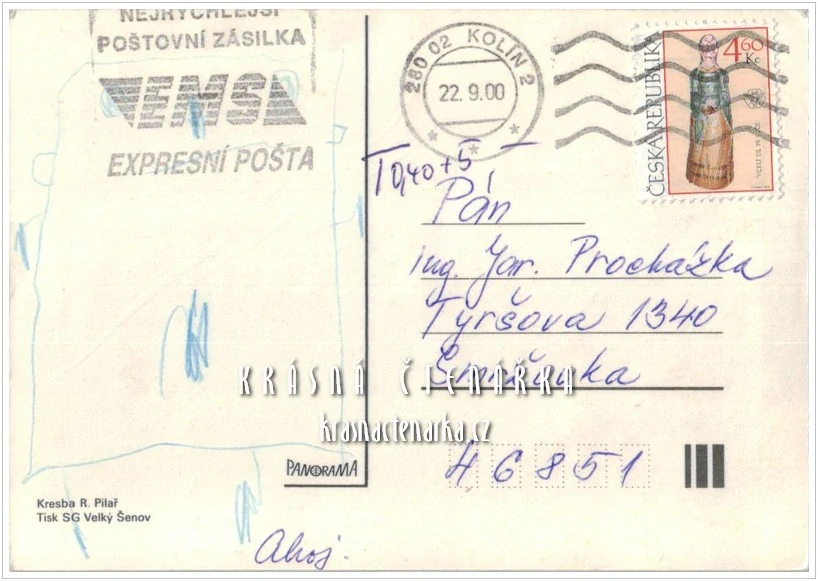 NEJRYCHLEJŠÍ
POŠTOVNÍ ZÁSILKA
EMS
EXPRESNÍ POŠTA
280 02 KOLÍN 2
22.9.00
4 60
Kč
ČESKÁ REPUBLIKA
T 0,40 + 5
Pán
ing. Jar. Procházka
Tyršova 1340
Smržovka
KRÁSNÁ ČTENÁŘKA
krasnactenarka.cz
46851
PANORAMA
Kresba R. Pilař
Tisk SG Velký Šenov
Ahoj